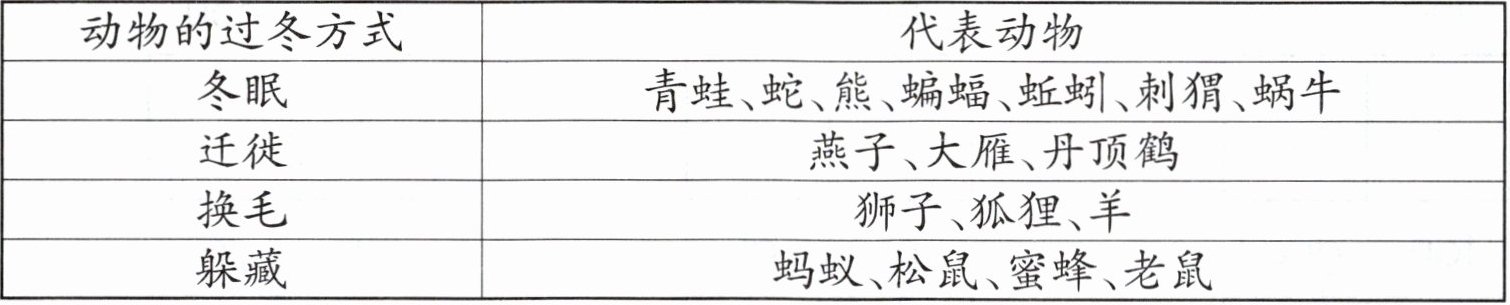 动物的过冬方式 代表动物
冬眠 青蛙、蛇、熊、蝙蝠、蚯蚓、刺猬、蜗牛
迁徙 燕子、大雁、丹顶鹤
换毛 狮子、狐狸、羊
躲藏 蚂蚁、松鼠、蜜蜂、老鼠